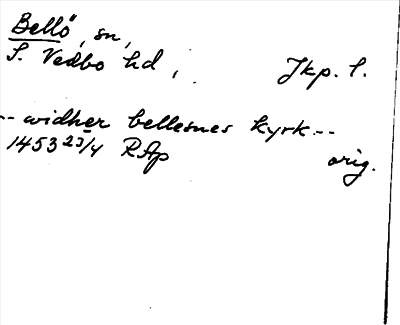 Bellö, sn,
S. Vedbo hd, Jkp. l.
-- widher bellesnes kyrk --
1453 23/4 RAp orig.